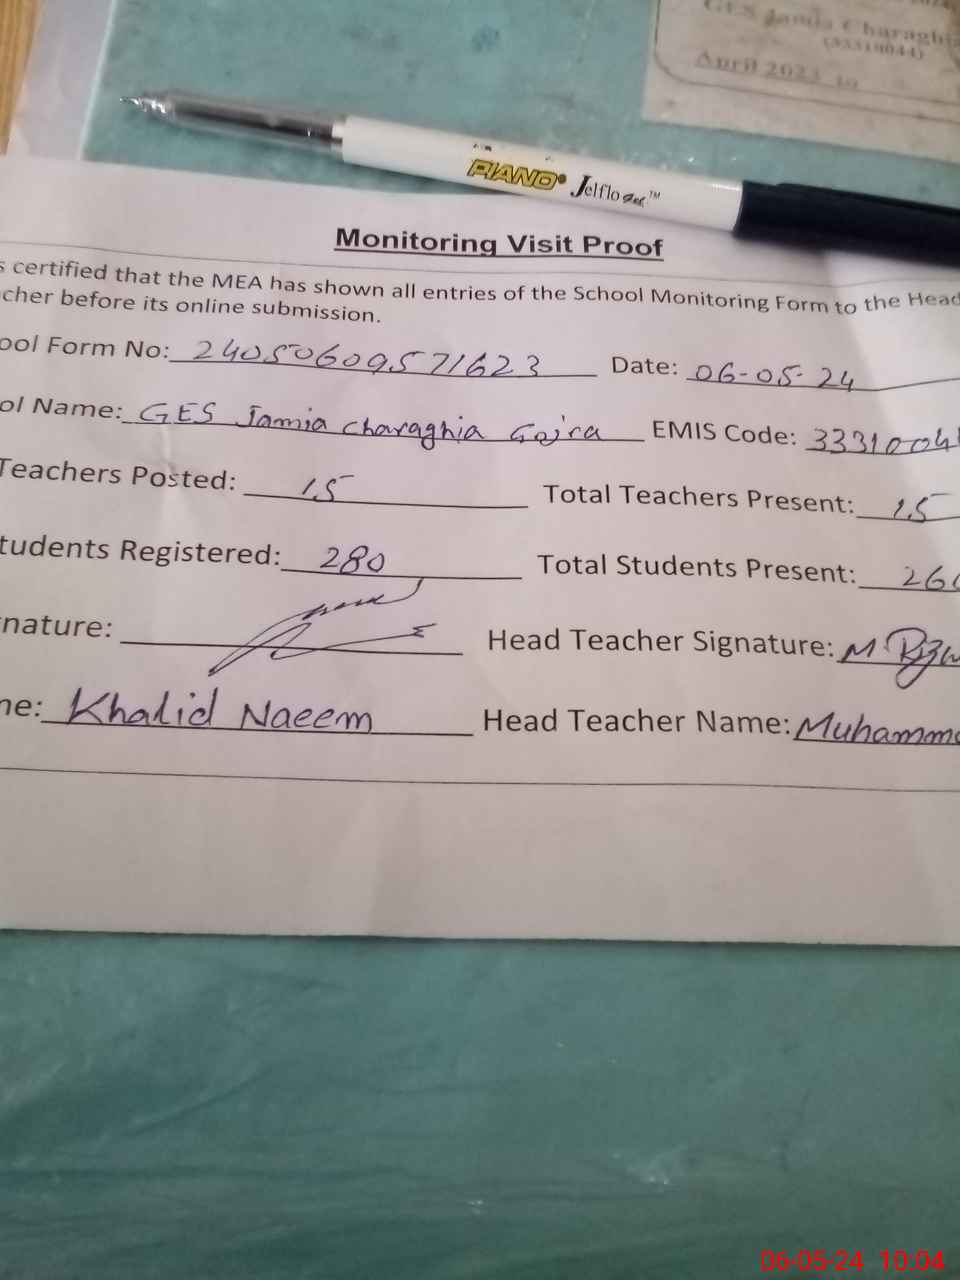 GES Jamia Charaghia
(33310044)
April 2023 to
PIANO Jelflo Gel TM
Monitoring Visit Proof
s certified that the MEA has shown all entries of the School Monitoring Form to the Head
cher before its online submission.
ool Form No: 24050609571623 Date: 06-05-24
ol Name: GES Jamia Charaghia Gojra EMIS Code: 3331004
Teachers Posted: 15 Total Teachers Present: 15
tudents Registered: 280 Total Students Present: 26
nature: Head Teacher Signature: M
ne: Khalid Naeem Head Teacher Name: Muhamm
06-05-24 10:04